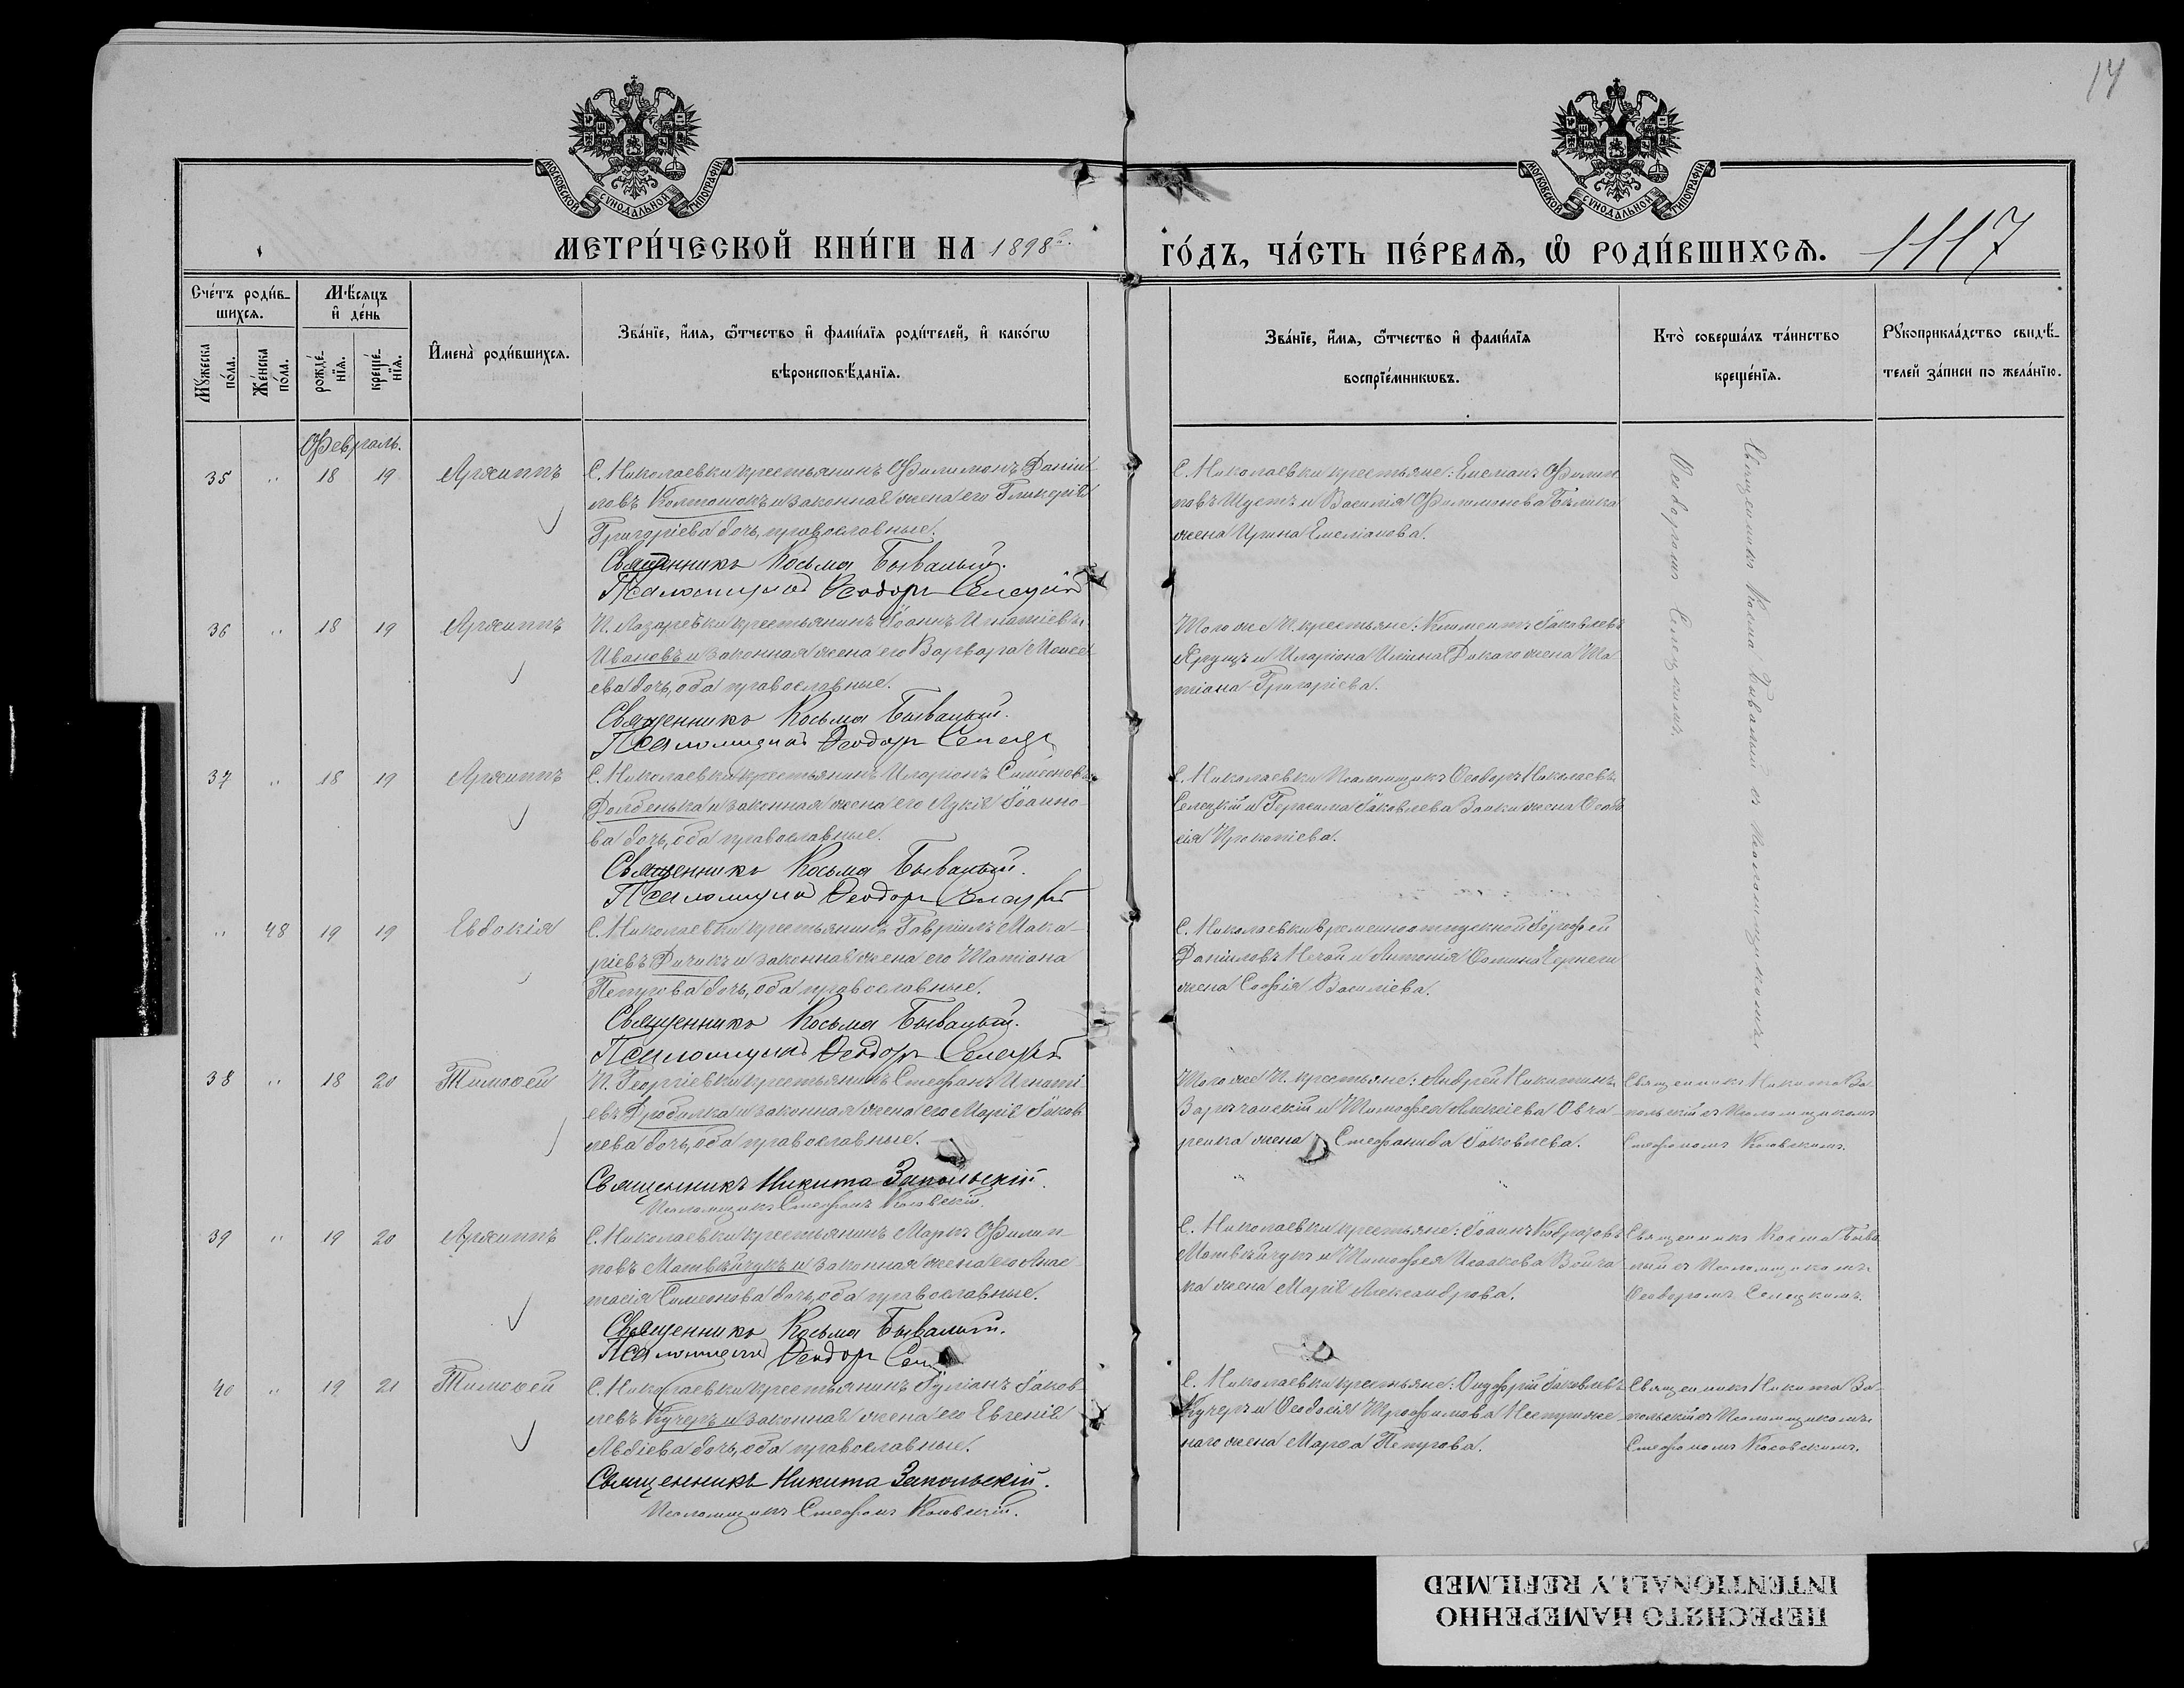 14
МОСКОВСКОЙ СѴНОДАЛЬНОЙ ТИПОГРАФІИ
МОСКОВСКОЙ СѴНОДАЛЬНОЙ ТИПОГРАФІИ
МЕТРИ́ЧЕСКОЙ КНИ́ГИ НА 1898
ГО́ДЪ, ЧА́СТЬ ПЕ́РВАѦ, Ѡ҆ РОДИ́ВШИХСѦ.
1117
Сче́тъ роди́в-
шихсѧ.
Мꙋ́жеска по́ла.
Же́нска по́ла.
Мѣ́сѧцъ
и҆ де́нь
рожде́нїѧ.
креще́нїѧ.
И҆мена̀ роди́вшихсѧ.
Зва́нїе, и҆́мѧ, ѻ҆́тчество и҆ фами́лїѧ роди́телей, и҆ како́гѡ
вѣроисповѣ́данїѧ.
Зва́нїе, и҆́мѧ, ѻ҆́тчество и҆ фами́лїѧ
воспрїе́мникѡвъ.
Кто̀ соверша́лъ та́инство
креще́нїѧ.
Рꙋкоприкла́дство свидѣ́-
телей за́писи по жела́нїю.
Февраль.
35 " 18 19 Архиппъ
С. Николаевки крестьянинъ Филимонъ Даніи-
ловъ Колтонюкъ и законная жена его Гликерія
Григоріева дочь, православные.
Священникъ Косьма Бывалый.
Псаломщикъ Ѳеодоръ Селецкій
С. Николаевки крестьяне: Емеліанъ Филип-
повъ Шустъ и Василія Филимонова Бѣлика
жена Ирина Емеліанова.
Священникъ Косма Бывалый съ Псаломщикомъ
Ѳеодоромъ Селецкимъ.
36 " 18 19 Архиппъ
П. Лазаревки крестьянинъ Іоаннъ Игнатіевъ
Ивановъ и законная жена его Варвара Моисе-
ева дочь, оба православные.
Священникъ Косьма Бывалый.
Псаломщикъ Ѳеодоръ
Того же П. крестьяне: Климентъ Іаковлевъ
Ярущъ и Иларіона Ильина Дикаго жена Та-
тіана Григоріева.
37 " 18 19 Архиппъ
С. Николаевки крестьянинъ Иларіонъ Симеоновъ
Долбенька и законная жена его Лукія Іоанно-
ва дочь, оба православные.
Священникъ Косьма Бывалый.
Псаломщикъ Ѳеодоръ Селецкій
С. Николаевки Псаломщикъ Ѳеодоръ Николаевъ
Селецкій и Герасима Іаковлева Заики жена Ѳеодо-
сія Прокопіева.
" 48 19 19 Евдокія
С. Николаевки крестьянинъ Гавріилъ Мака-
ріевъ Дичикъ и законная жена его Татіана
Петрова дочь, оба православные.
Священникъ Косьма Бывалый.
Псаломщикъ Ѳеодоръ Селецкій
С. Николаевки временноотпускной Іероѳей
Даніиловъ Нечай и Антонія Ѳомина
жена Софія Василіева.
38 " 18 20 Тимоѳей
П. Георгіевки крестьянинъ Стефанъ Игнаті-
евъ Дробилка и законная жена его Марія Іаков-
лева дочь, оба православные.
Священникъ Никита Запольскій.
Псаломщикъ Стефанъ Косовскій.
Того же П. крестьяне: Андрей Никитинъ
Заричанскій и Тимоѳея Алексіева Овча-
ренка жена Стефанида Іаковлева.
Священникъ Никита За-
польскій съ Псаломщикомъ
Стефаномъ Косовскимъ.
39 " 19 20 Архиппъ
С. Николаевки крестьянинъ Маркъ Филип-
повъ Матвѣйчукъ и законная жена его Анас-
тасія Симеонова дочь, оба православные.
Священникъ Косьма Бывалый.
Псаломщикъ Ѳеодоръ
С. Николаевки крестьяне: Іоаннъ Кодратовъ
Матвѣйчукъ и Тимоѳея Исаакова Война-
ка жена Марія Александрова.
Священникъ Косма Быва-
лый съ Псаломщикомъ
Ѳеодоромъ Селецкимъ.
40 " 19 21 Тимоѳей
С. Николаевки крестьянинъ Іуліанъ Іаков-
левъ Кучеръ и законная жена его Евгенія
Авдіева дочь, оба православные.
Священникъ Никита Запольскій.
Псаломщикъ Стефанъ Косовскій.
С. Николаевки крестьяне: Онуфрій Іаковлевъ
Кучеръ и Ѳеодосія Трофимова
жена Марѳа Петрова.
Священникъ Никита За-
польскій съ Псаломщикомъ
Стефаномъ Косовскимъ.
ПЕРЕСНЯТО НАМЕРЕННО
INTENTIONALLY REFILMED